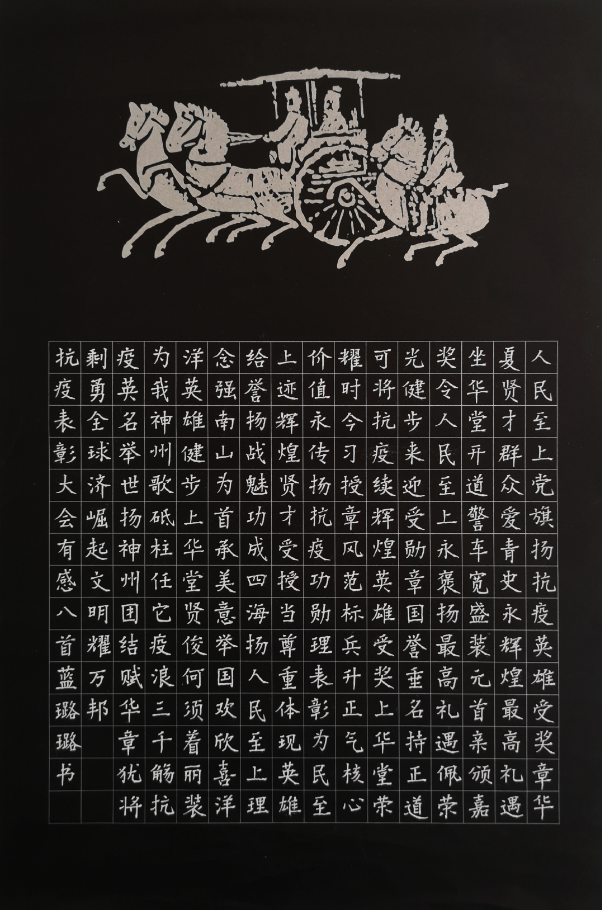 人民至上党旗扬抗疫英雄受奖章华
夏贤才群众爱青史永辉煌最高礼遇
坐华堂开道警车宽盛装元首亲颁嘉
奖令人民至上永褒扬最高礼遇佩荣
光健步来迎受勋章国誉垂名持正道
可将抗疫续辉煌英雄受奖上华堂荣
耀时今习授章风范标兵升正气核心
价值永传扬抗疫功勋理表彰为民至
上迹辉煌贤才受授当尊重体现英雄
给誉扬战魅功成四海扬人民至上理
念强南山为首承美意举国欢欣喜洋
洋英雄健步上华堂贤俊何须着丽装
为我神州歌砥柱任它疫浪三千觞抗
疫英名举世扬神州团结赋华章犹将
剩勇全球济崛起文明耀万邦
抗疫表彰大会有感八首蓝璐璐书